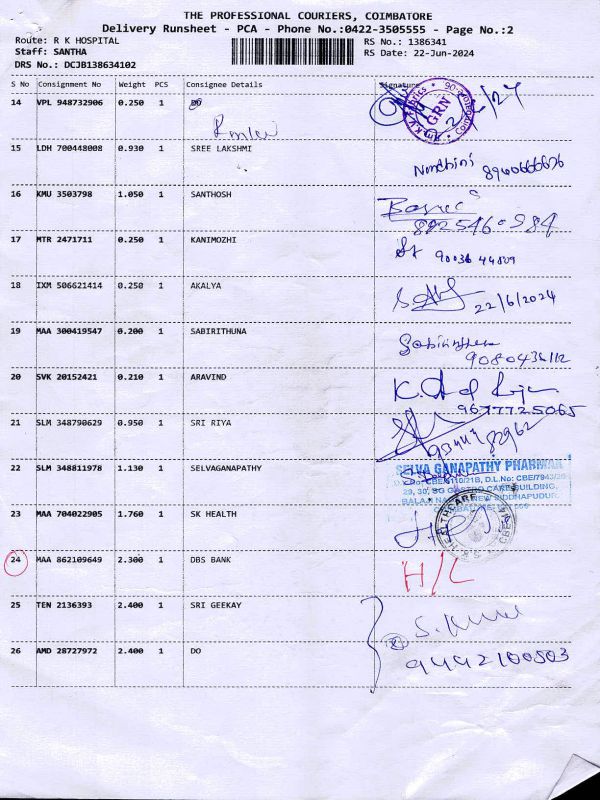 THE PROFESSIONAL COURIERS, COIMBATORE
Delivery Runsheet - PCA - Phone No.:0422-3505555 - Page No.:2
Route: R K HOSPITAL RS No.: 1386341
Staff: SANTHA RS Date: 22-Jun-2024
DRS No.: DCJB138634102
S No Consignment No Weight PCS Consignee Details Signature
14 VPL 948732906 0.250 1 DO
GRN
15 LDH 700448008 0.930 1 SREE LAKSHMI
Nandhini
16 KMU 3503798 1.050 1 SANTHOSH
17 MTR 2471711 0.250 1 KANIMOZHI
18 IXM 506621414 0.250 1 AKALYA
22/6/2024
19 MAA 300419547 0.200 1 SABIRITHUNA
20 SVK 20152421 0.210 1 ARAVIND
9677725065
21 SLM 348790629 0.950 1 SRI RIYA
22 SLM 348811978 1.130 1 SELVAGANAPATHY
SELVA GANAPATHY PHARMACY
23 MAA 704022905 1.760 1 SK HEALTH
24 MAA 862109649 2.300 1 DBS BANK
H/L
25 TEN 2136393 2.400 1 SRI GEEKAY
26 AMD 28727972 2.400 1 DO
9442100503